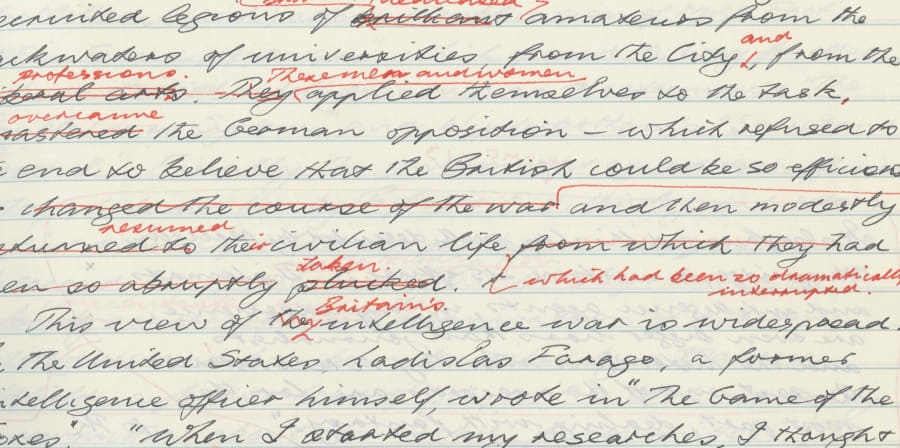 dedicated
recruited legions of brilliant amateurs from the
backwaters of universities, from the City, and from the
professions. These men and women
liberal arts. They applied themselves to the task,
overcame
mastered the German opposition – which refused to
end to believe that the British could be so efficient
changed the course of the war and then modestly
resumed
returned to their civilian life from which they had
taken.
been so abruptly plucked. which had been so dramatically
interrupted.
Britain's
This view of the intelligence war is widespread.
the United States, Ladislas Farago, a former
intelligence officer himself, wrote in "The Game of the
Foxes," "When I started my researches, I thought